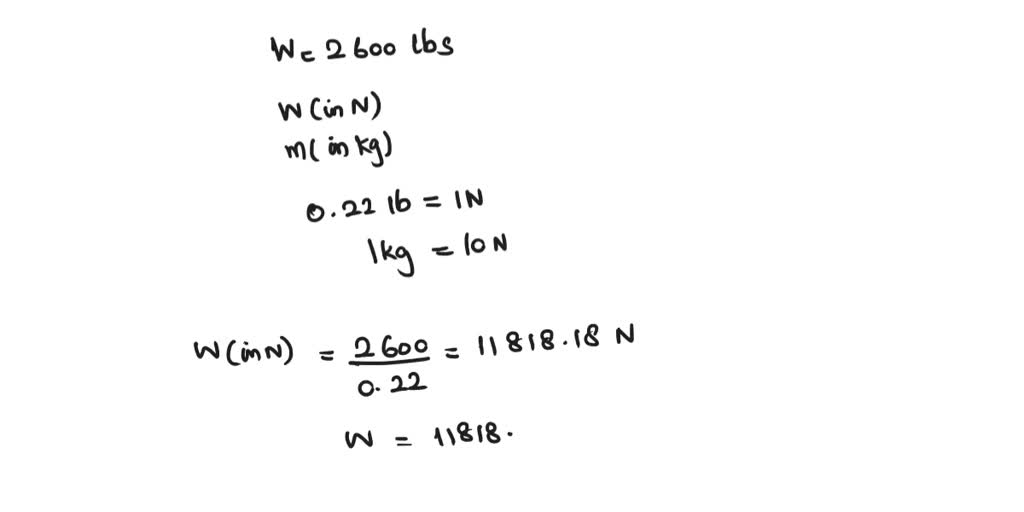 W = 2600 lbs
W (in N)
m( in kg)
0.22 lb = 1N
1kg = 10 N
W (in N) = 2600 / 0.22 = 11818.18 N
W = 11818.